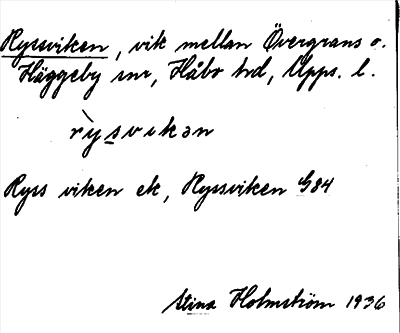 Ryssviken, vik mellan Övergrans o.
Häggeby snr, Håbo hd, Upps. l.
rỳsvikən
Ryss viken ek, Ryssviken G84
Stina Holmström 1936